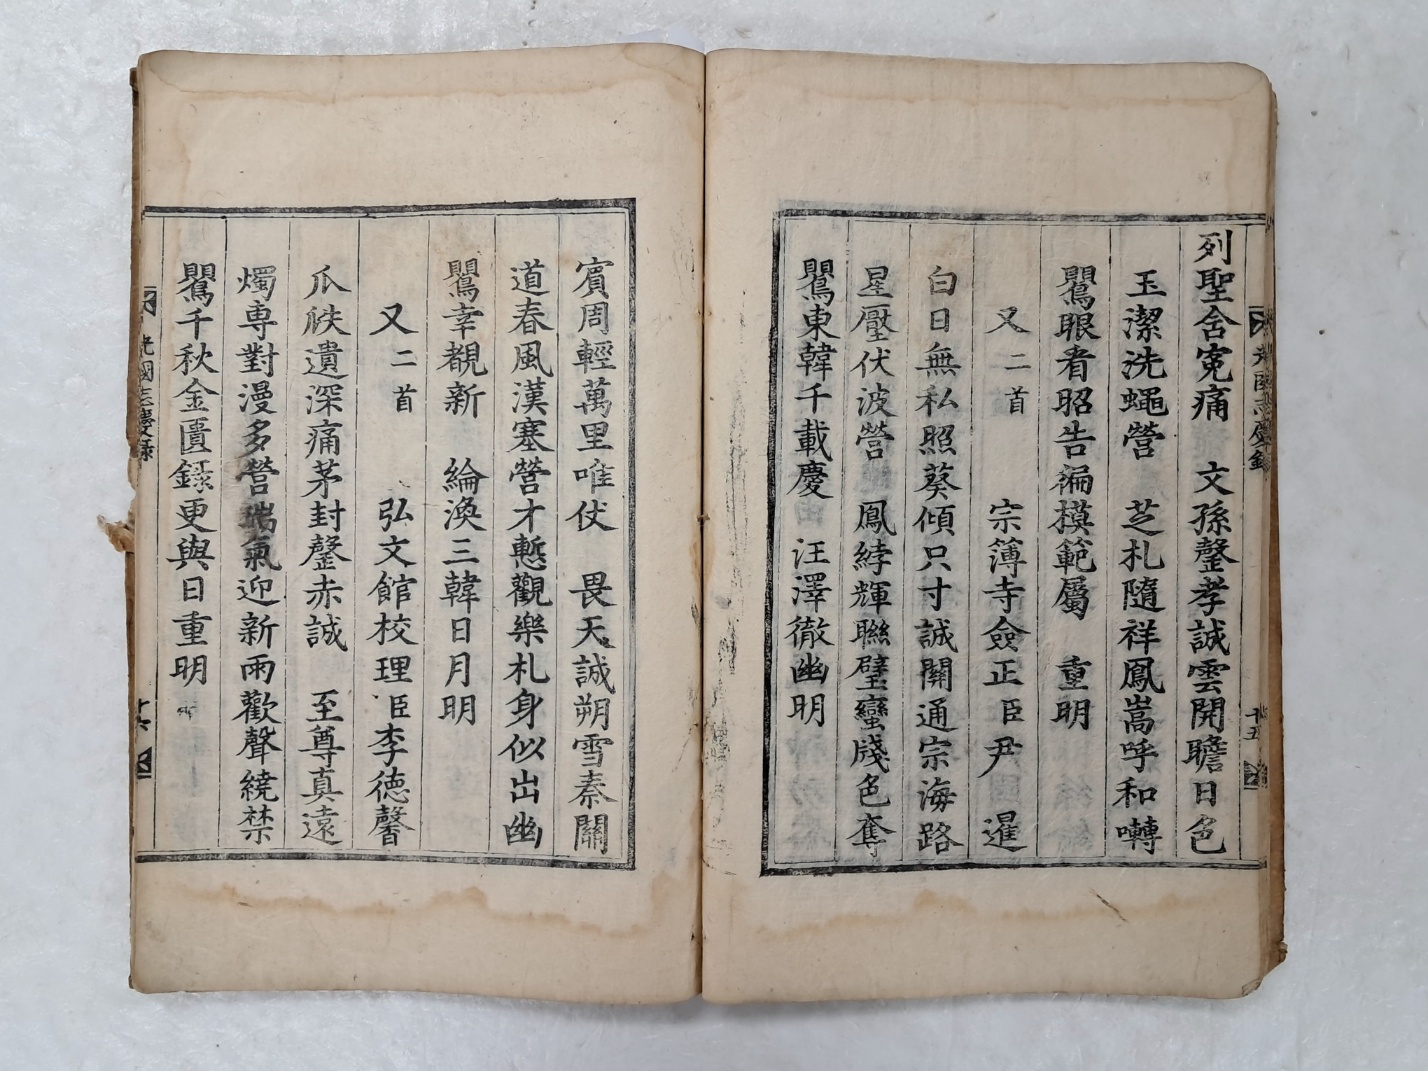 列聖含冤痛　文孫罄孝誠雲開瞻日色
玉潔洗蠅營　芝札隨祥鳳嵩呼和囀
鸎眼看昭告徧模範屬　重明
又二首　宗簿寺僉正臣尹　暹
白日無私照葵傾只寸誠關通宗海路
星壓伏波營　鳳綍輝聯璧蠻牋色奪
鸎東韓千載慶　汪澤徹幽明
賓周輕萬里唯伏　畏天誠朔雪秦關
道春風漢塞營才慙觀樂札身似出幽
鸎幸覩新　綸渙三韓日月明
又二首　弘文館校理臣李德馨
瓜瓞遺深痛茅封罄赤誠　至尊真遠
燭専對漫多營瑞氣迎新雨歡聲繞禁
鸎千秋金匱録更與日重明
光國志慶録
十六